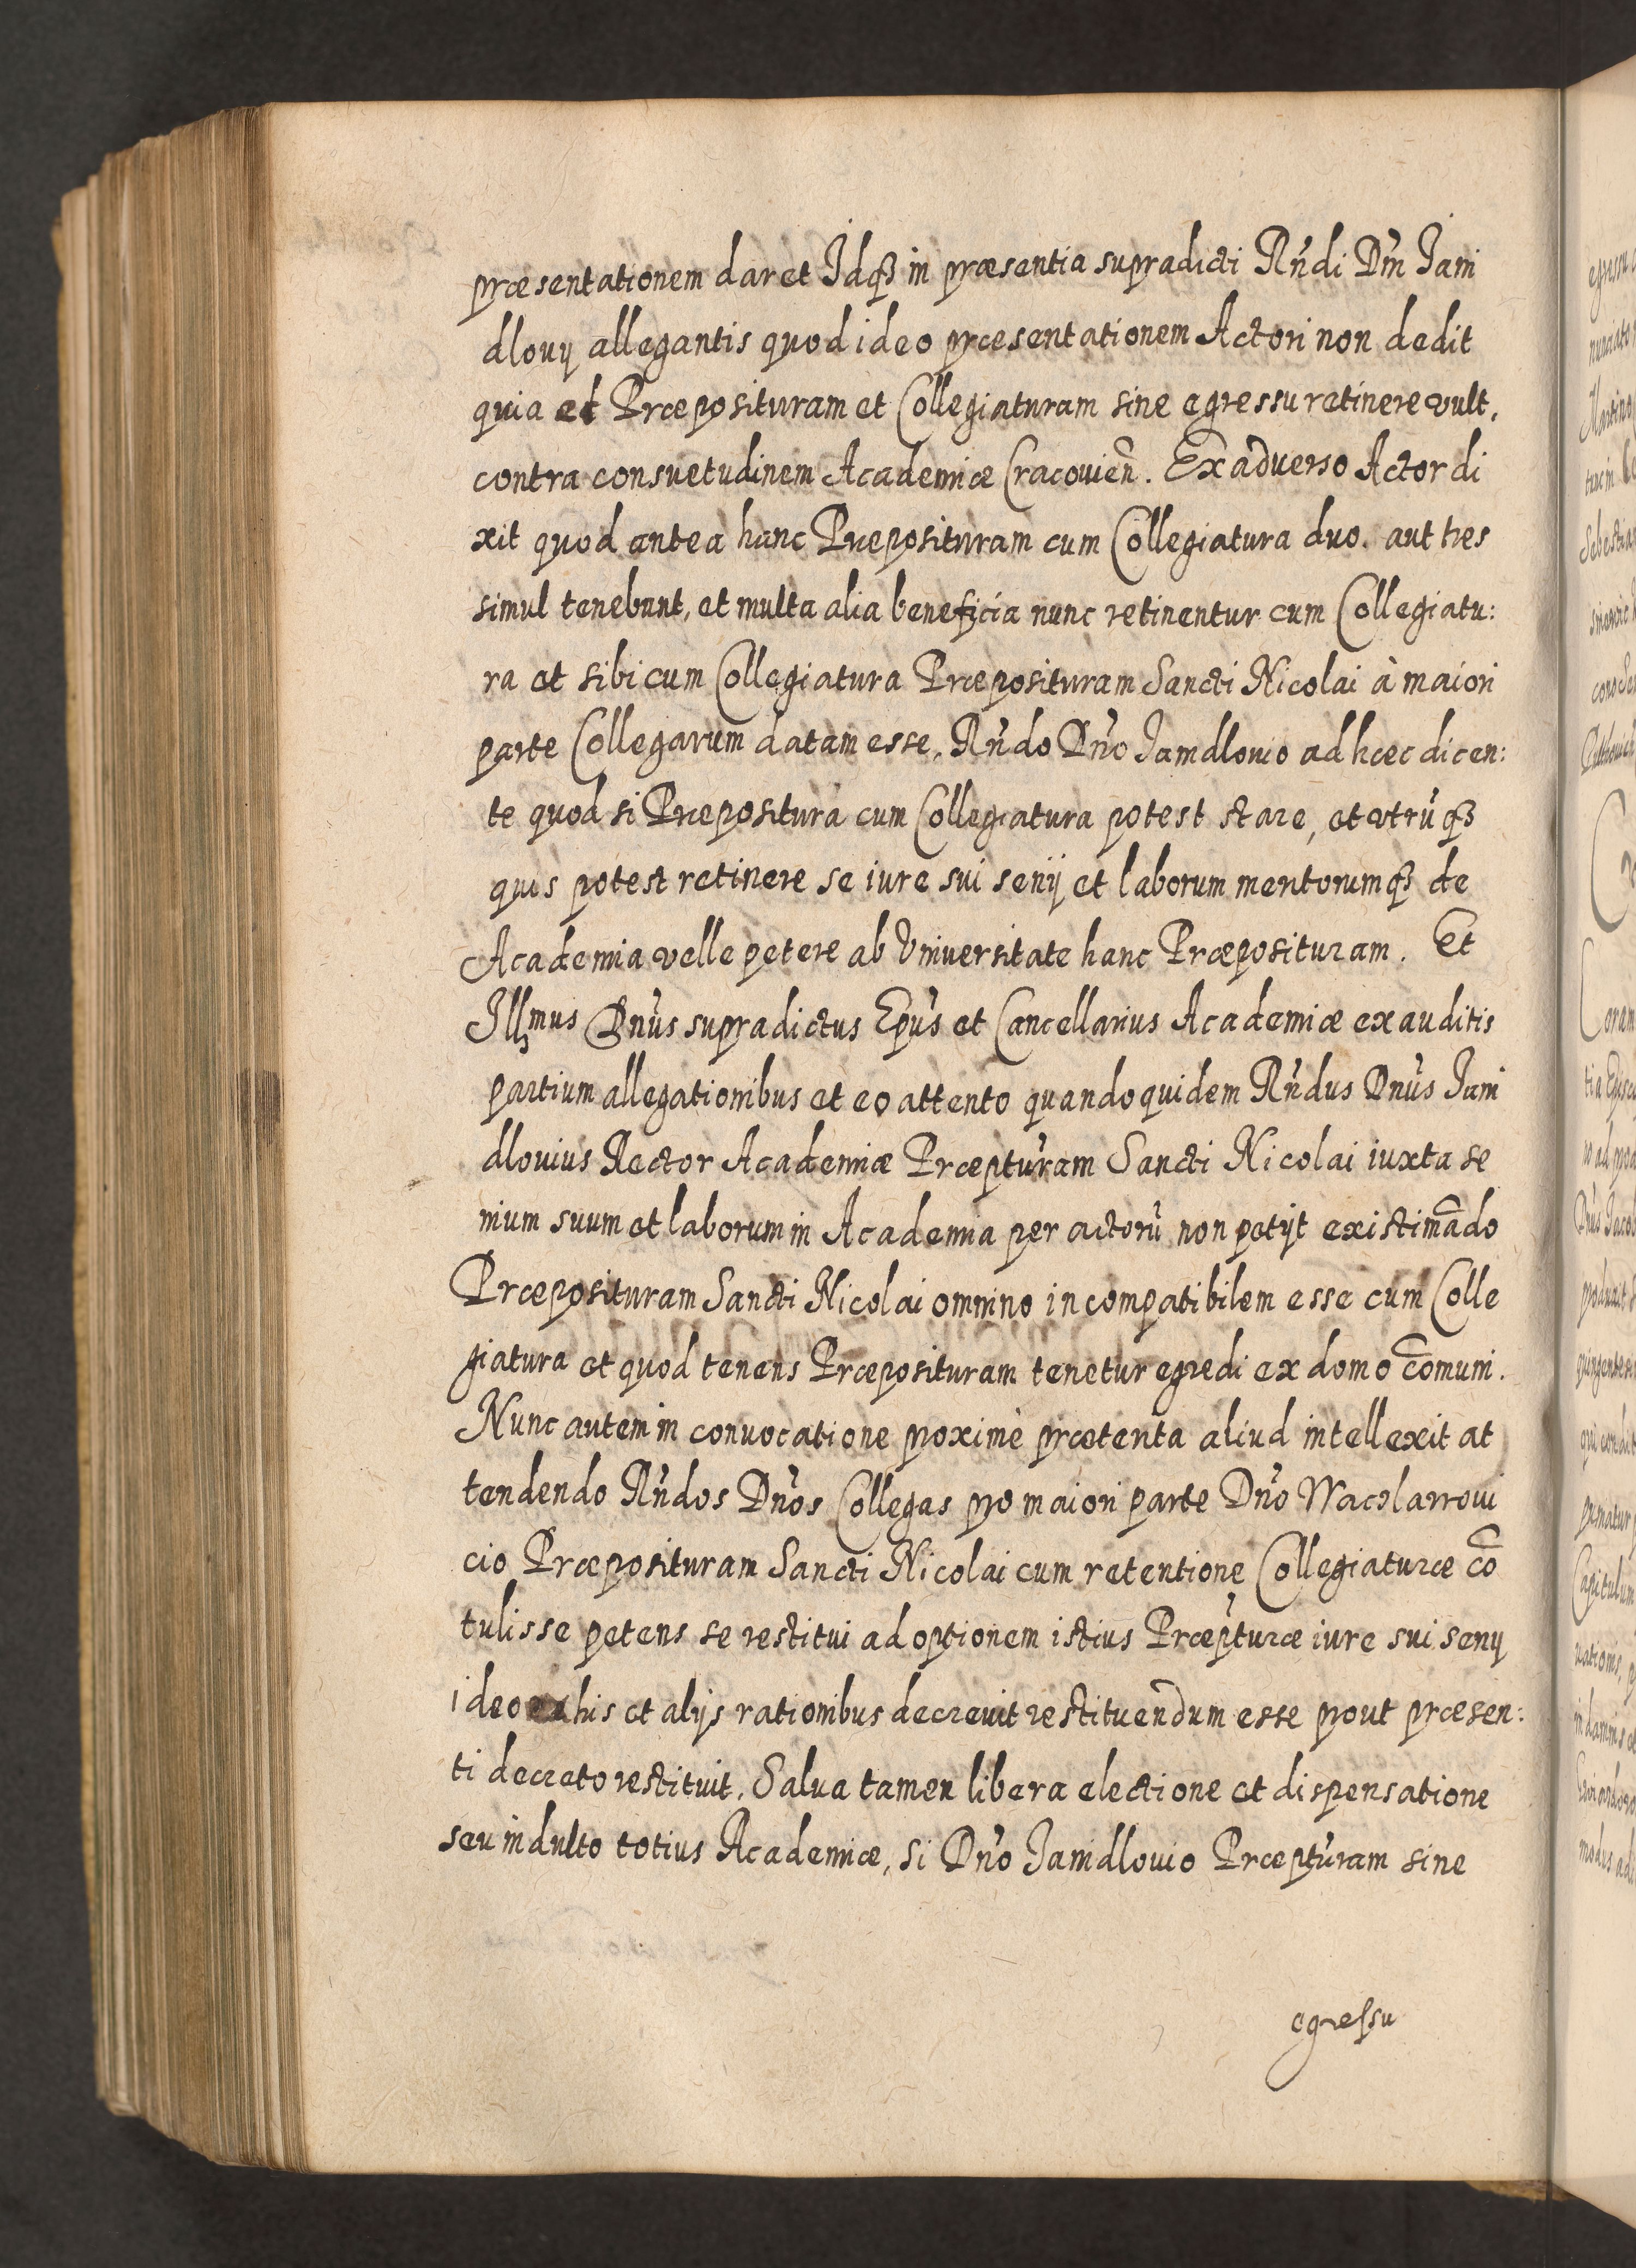 præsentationem daret Idq3 in præsentia supradicti Rñdi Dñi Iani
dlouij allegantis quod ideo præsentationem Actori non dedit
quia et Præposituram et Collegiaturam sine egressu retinere vult,
contra consuetudinem Academiæ Cracouieñ. Ex aduerso Actor di
xit quod antea hanc Præposituram cum Collegiatura duo. aut tres
simul tenebunt, et multa alia beneficia nunc retinentur cum Collegiatu:
ra et sibi cum Collegiatura Præposituram Sancti Nicolai à maiori
parte Collegarum datam esse, Rñdo Dño Ianidlouio ad hæc dicen:
te quod si Præpositura cum Collegiatura potest stare, et vtrũq3
quis potest retinere se iure sui senij et laborum meritorumq3 de
Academia velle petere ab Vniuersitate hanc Præposituram. Et
Illmus Dñus supradictus Epũs et Cancellarius Academiæ exauditis
partium allegationibus et eo attento quandoquidem Rñdus Dñus Iani
dlouius Rector Academiæ Præpturam Sancti Nicolai iuxta se
nium suum et laborum in Academia per actorũ non petijt existimãdo
Præposituram Sancti Nicolai omnino incompatibilem esse cum Colle
giatura et quod tenens Præposituram tenetur egredi ex domo cõmuni.
Nunc autem in conuocatione proximè prætenta aliud intellexit at
tendendo Rñdos Dños Collegas pro maiori parte Dño Waclarroui
cio Præposituram Sancti Nicolai cum retentione Collegiaturæ cõ
tulisse petens se restitui ad optionem istius Præpturæ iure sui senij
ideo ex his et alijs rationibus decreuit restituendum esse prout præsen:
ti decreto restituit. Salua tamen libera electione et dispensatione
seu indulto totius Academiæ, si Dño Ianidlouio Præpturam sine
egressu